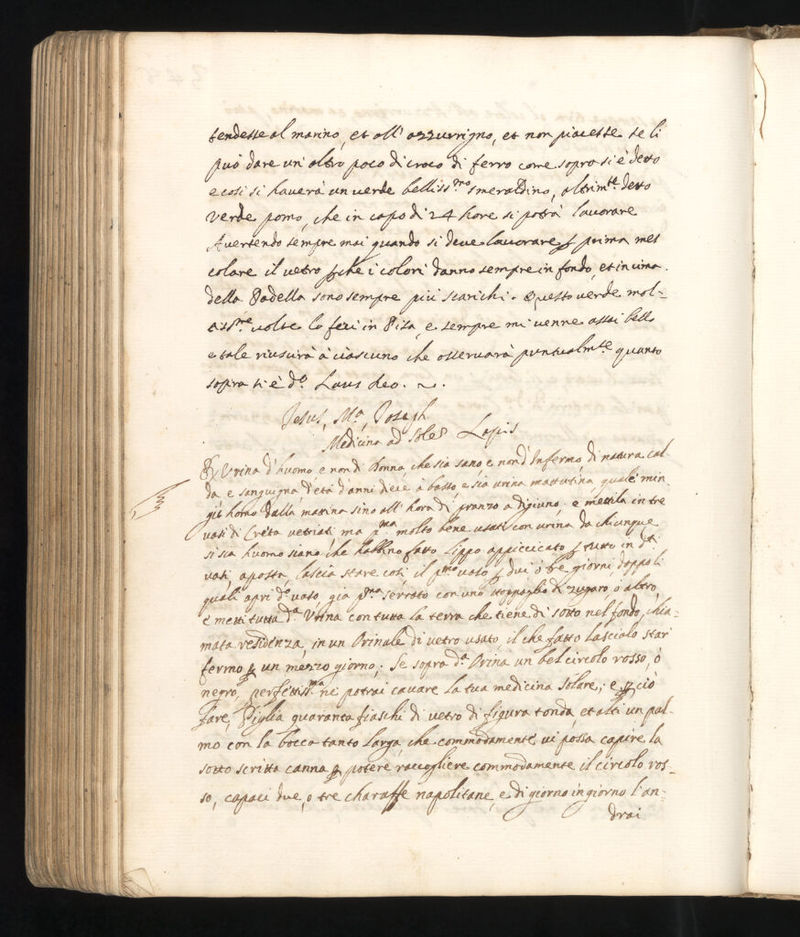 tendesse al marino, et all' azzurrigno, et non piacesse se li
può dare un altro poco di croco di ferro come sopra si è detto
e cosi si haverà un verde belliss.mo smeraldino, altrim.te detto
Verde pomo, che in capo di 24 hore si potrà lavorare
Avertendo sempre mai quando si deve lavorare prima mes
colare il vetro che i colori danno sempre in fondo, et in cima
della Padella sono sempre più scarichi. Questo verde mol-
tiss.me volte lo feci in Pisa, e sempre mi venne assai bello
e tale riuscirà à ciascuno che osservarà puntualm.te quanto
sopra si è d.o Laus deo.
Jesus, M.a, Joseph
Medicina ad Soles Lapis
Urina d'huomo e non di Donna che sia sano e non d'Infermo di natura cal
da, e sanguigna, d'età d'anni dieci à basso e sia urina mattutina, quale min
git homo dalla matina sino all' hora di pranzo a digiuno, e mettila in tre
vasi di Creta vetriati ma p.ma molto bene usati con urina da chiunque
si sia huomo siano che habbino fatto Lippo appiccicato tutto in d.ti
vasi, aposta, lascia stare cosi il p.mo vaso dui ò tre giorni, doppoli
quali apri d.o vaso, già p.ma serrato con uno stoppaglio di zuparo, ò altro
e metti tutta d.a Vrina con tutta la terra che tiene di sotto nel fondo, chia-
mata residenza, in un Orinale di vetro usato, il che fatto lascialo star
fermo un mezzo giorno; Se sopra d.a Orina un bel circolo rosso, ò
negro, perfettiss.ma ne potrai cavare la tua medicina Solare; e ciò
fare, Piglia quaranta fiaschi di vetro di figura tonda et alti un pal-
mo con la bocca tanto larga, che commodamente vi possa capire la
sotto scritta canna potere raccogliere commodamente il circolo ros-
so, capaci due, o tre charaffe napolitane, e di giorno in giorno l'an-
drai